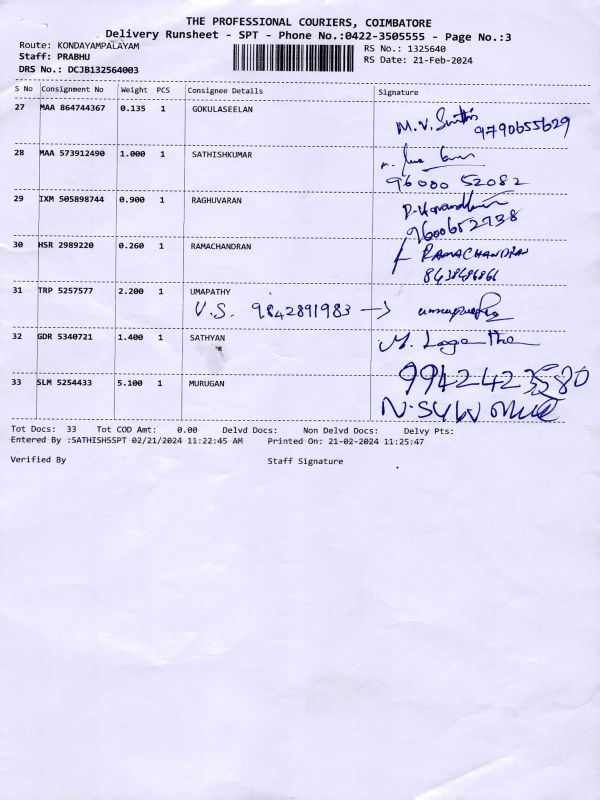 THE PROFESSIONAL COURIERS, COIMBATORE
Delivery Runsheet - SPT - Phone No.:0422-3505555 - Page No.:3
Route: KONDAYAMPALAYAM
Staff: PRABHU
DRS No.: DCJB132564003
RS No.: 1325640
RS Date: 21-Feb-2024
S No Consignment No Weight PCS Consignee Details Signature
27 MAA 864744367 0.135 1 GOKULASEELAN
M.V. 9790655629
28 MAA 573912490 1.000 1 SATHISHKUMAR
96000 52082
29 IXM 505898744 0.900 1 RAGHUVARAN
9600652938
30 HSR 2989220 0.260 1 RAMACHANDRAN RAMACHANDRAN
31 TRP 5257577 2.200 1 UMAPATHY
V.S. 9842891983 →
32 GDR 5340721 1.400 1 SATHYAN
33 SLM 5254433 5.100 1 MURUGAN
Tot Docs: 33 Tot COD Amt: 0.00 Delvd Docs: Non Delvd Docs: Delvy Pts:
Entered By :SATHISHSSPT 02/21/2024 11:22:45 AM Printed On: 21-02-2024 11:25:47
Verified By Staff Signature